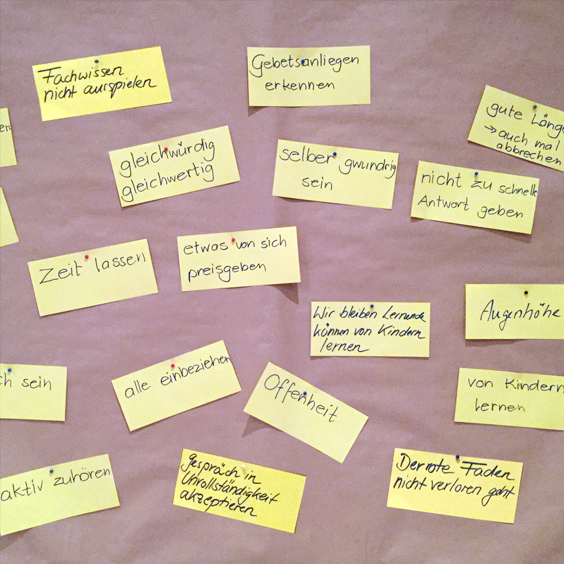 Fachwissen
nicht ausspielen
Gebetsanliegen
erkennen
gute Länge
→ auch mal
abbrechen
gleichwürdig
gleichwertig
selber gwundrig
sein
nicht zu schnelle
Antwort geben
Zeit lassen
etwas von sich
preisgeben
Wir bleiben Lernende
können von Kindern
lernen
Augenhöhe
sein
alle einbeziehen
Offenheit
von Kindern
lernen
aktiv zuhören
gespräch in
Unvollständigkeit
akzeptieren
Der rote Faden
nicht verloren geht